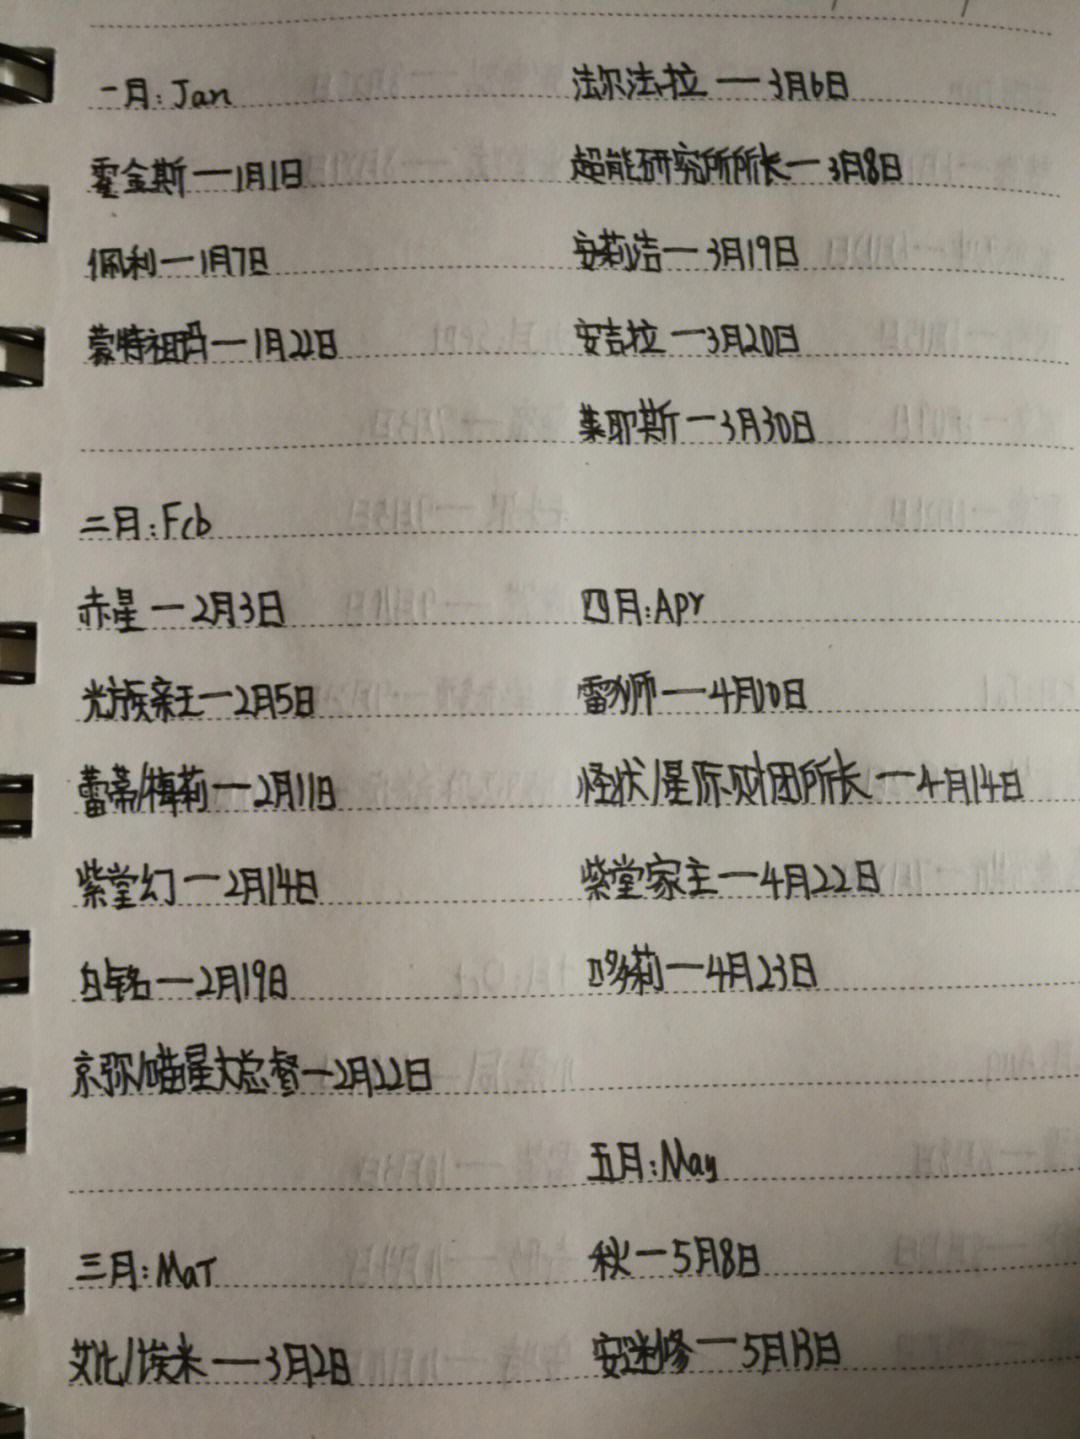 一月:Jan
霍金斯一1月1日
佩利一1月7日
蒙特祖玛一1月22日
二月:Feb
赤星一2月3日
光族亲王一2月5日
蕾蒂/梅莉一2月11日
紫堂幻一2月14日
白铭一2月19日
京弥/喵星大总督一2月22日
三月:Mar
艾比/埃米一3月2日
法尔法拉一3月6日
超能研究所所长一3月8日
安莉洁一3月19日
安吉拉一3月20日
莱耶斯一3月30日
四月:Apr
雷狮一4月10日
怪状/星际财团所长一4月14日
紫堂家主一4月22日
哆莉一4月23日
五月:May
秋一5月8日
安迷修一5月13日